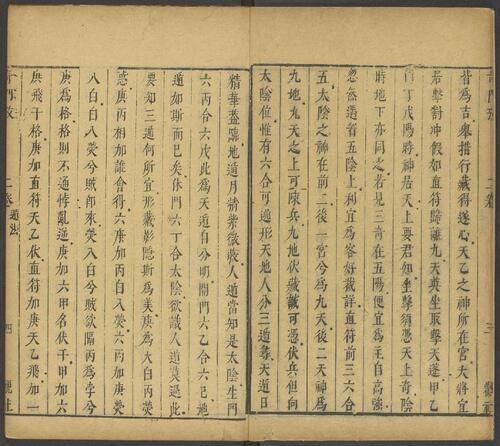 皆為吉舉措行藏得遂心天乙之神所在宮大將宜
居擊對冲假如直符歸離九天英坐取擊天蓬甲乙
丙丁戊陽時神居天上要君知坐擊須憑天上奇陰
時地下亦同之若見三奇在五陽便宜為主自高強
忽然逢着五陰上利宜為客好裁詳直符前三六合
太陰之神在前二後一宮兮為九天後二天神為
九地九天之上可陳兵九地伏藏藏可憑伏兵但向
太陰位惟有六合可逃形天地人分三遁尋天遁日
精華蓋臨地遁月精紫微蔽人遁當知是太陰生門
六丙合六戊此為天遁自分明開門六乙合六己地
遁如斯而已矣休門六丁合太陰欲識人遁莫過此
要知三遁何所宜形藏影隱斯為美庚為太白丙熒
惑庚丙相加誰會得六庚加丙白入熒六丙加庚熒
入白白入熒兮賊即來熒入白兮賊欲隔丙為孛兮
庚為格格則不通悖亂逆庚加六甲名伏干甲加六
庚飛干格庚加直符天乙伏直符加庚天乙飛加一
二卷 遁法 四